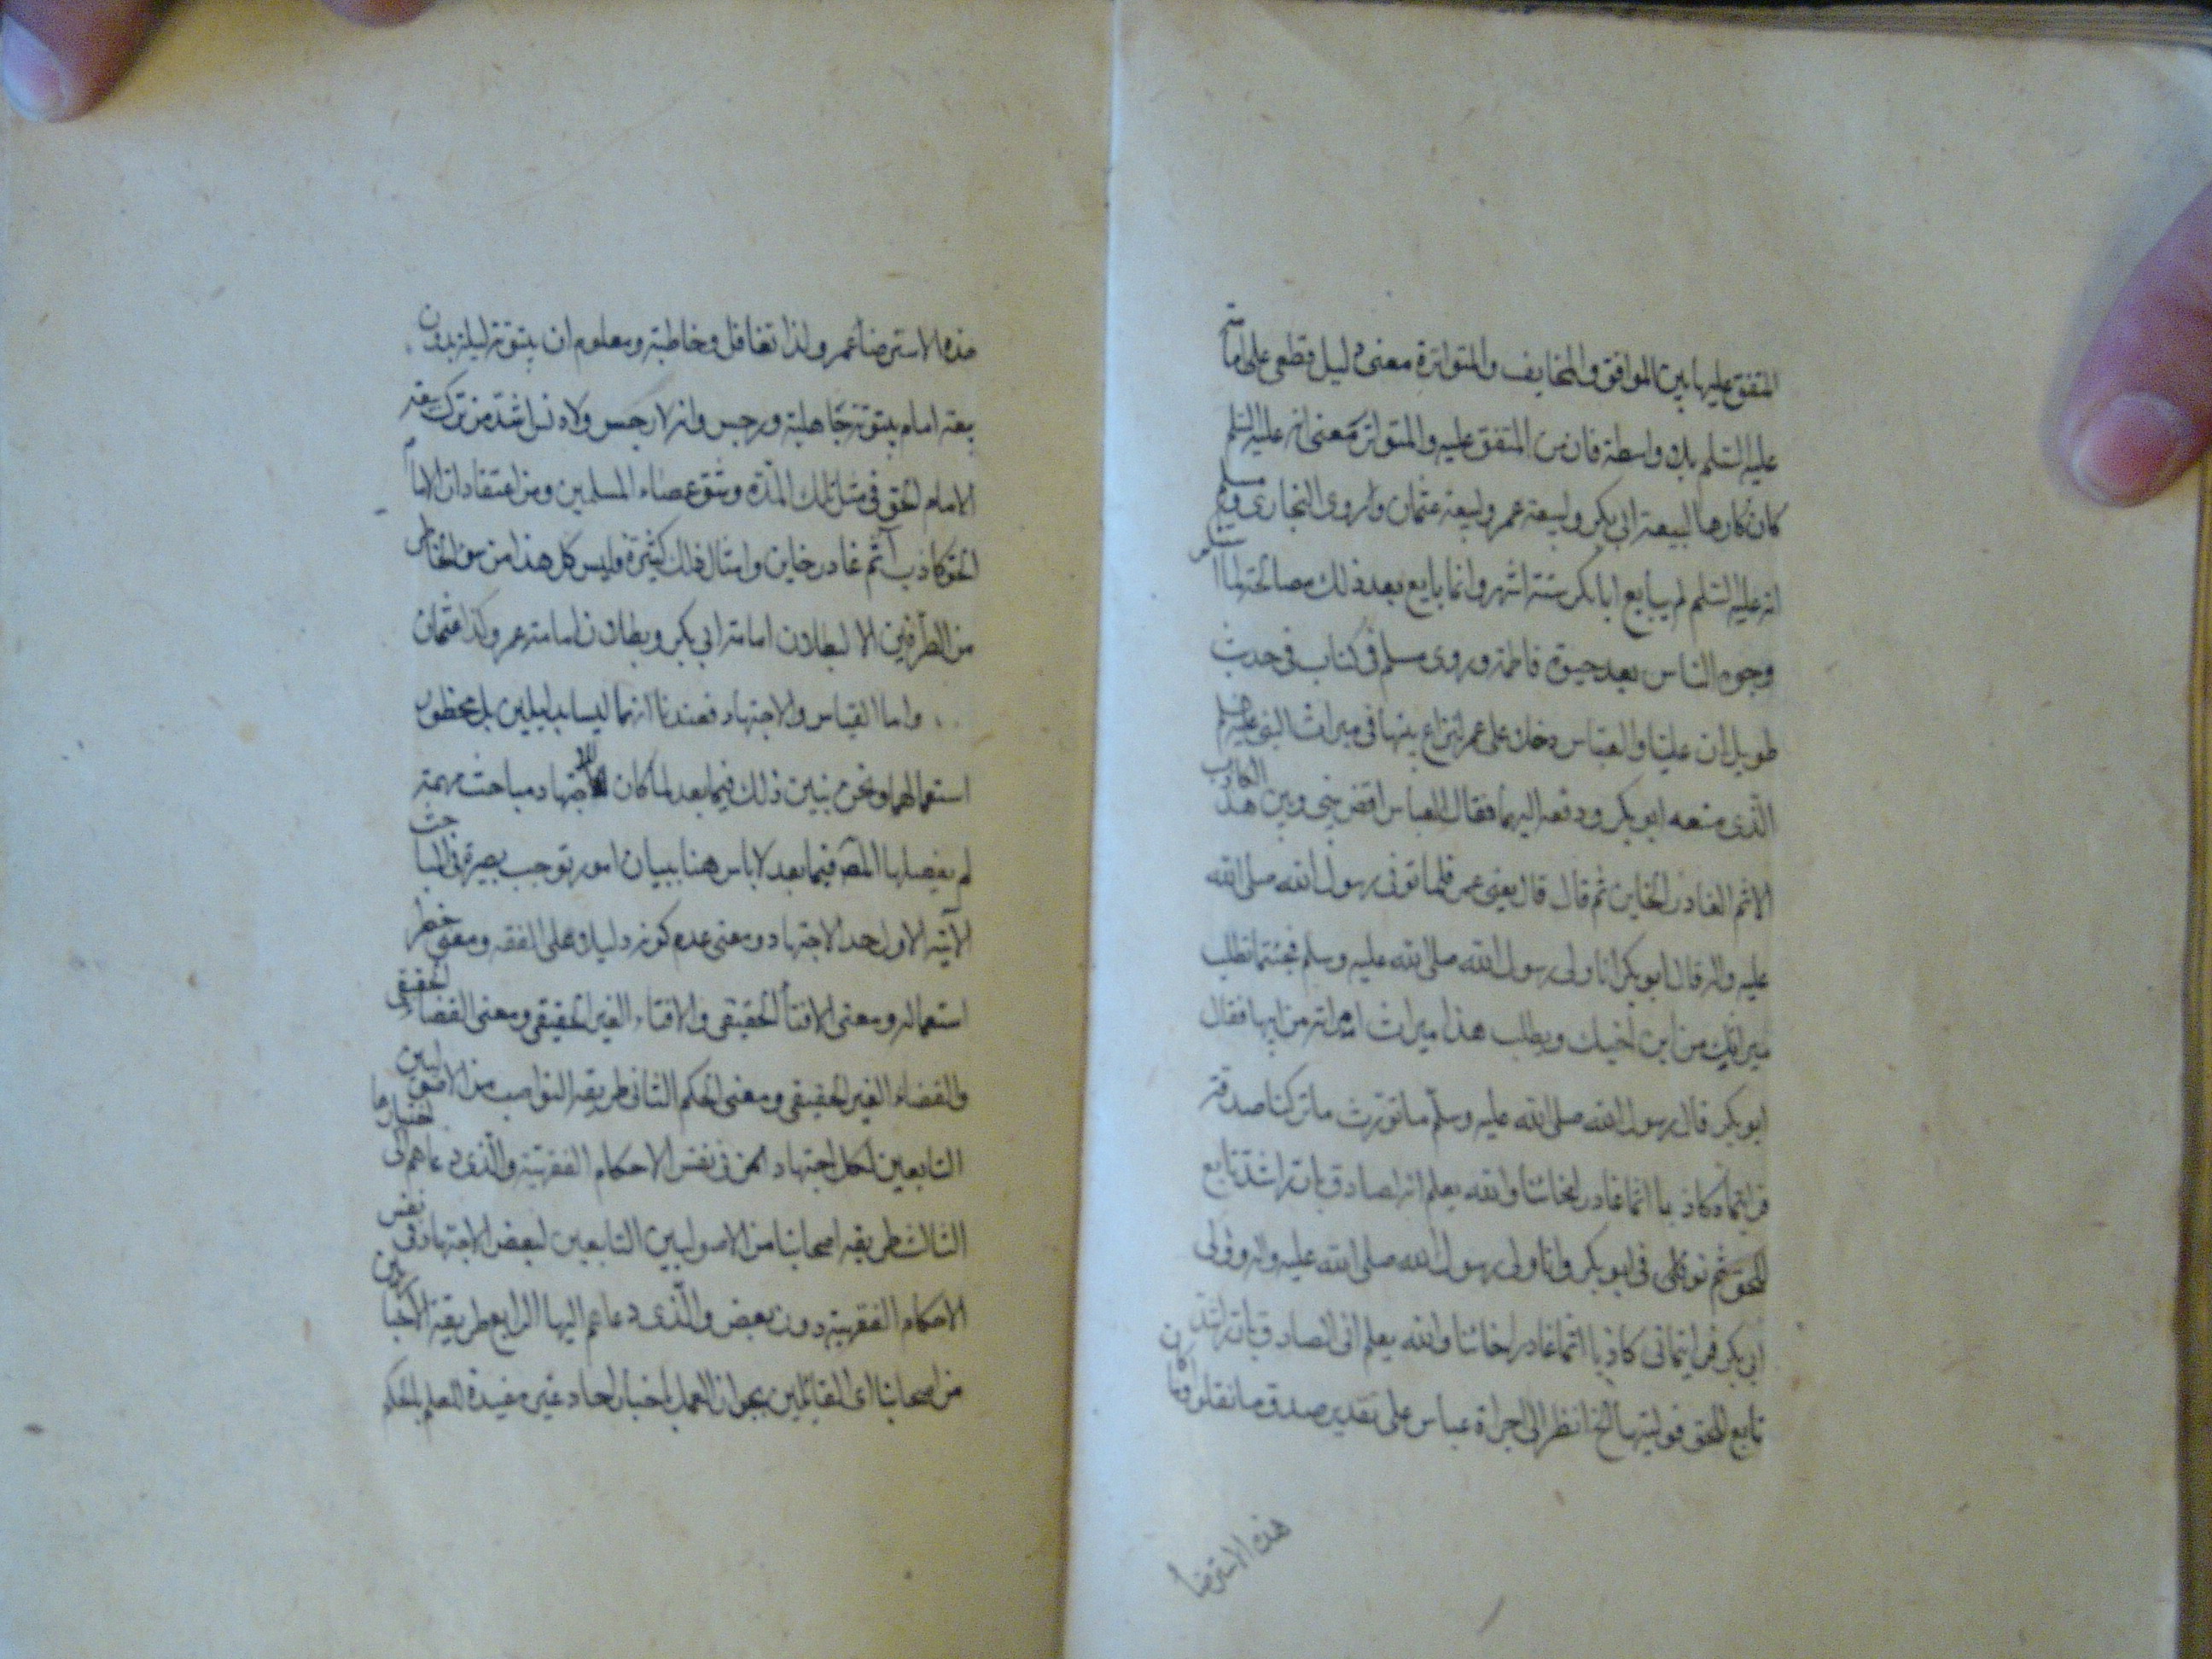 المتفق عليها بين الموافق والمخالف والمتواترة معنى دليل قطعى على امامته
عليه السلم بلا واسطة فان من المتفق عليه والمتواتر معنى انه عليه السلم
كان كارها لبيعة ابى بكر ولبيعة عمر ولبيعة عثمان وروى البخارى ومسلم
انه عليه السلم لم يبايع ابا بكر ستة اشهر وانما بايع بعد ذلك مصالحة لما استنكر
وجوه الناس بعد حيوة فاطمة وروى مسلم فى كتابه فى حديث
طويل ان عليا والعباس دخلا على عمر لنزاع بينهما فى ميراث النبى صلى الله عليه وسلم
الذى منعه ابو بكر ودفعه اليهما فقال العباس اقض بينى وبين هذا الكاذب
الاثم الغادر الخاين ثم قال قال يعنى عمر فلما توفى رسول الله صلى الله
عليه واله قال ابو بكر انا ولى رسول الله صلى الله عليه وسلم فجئتما تطلب
ميراثك من ابن اخيك ويطلب هذا ميراث امراته من ابيها فقال
ابو بكر قال رسول الله صلى الله عليه وسلم ما نورث ما تركنا صدقة
فرايتماه كاذبا اثما غادرا خائنا والله يعلم انه لصادق بار راشد تابع
للحق ثم توفى ابو بكر وانا ولى رسول الله صلى الله عليه واله وولى
ابى بكر فرايتمانى كاذبا اثما غادرا خائنا والله يعلم انى لصادق بار راشد
تابع للحق فوليتها الخ انظر الى جراة عباس على تقدير صدق ما نقلوا
هذه الاسترضا
هذه الاسترضا عمر ولذا تغافل وخاطبه ومعلوم ان بيتوتة ليلة بدون
بيعة امام بيتوتة جاهلية ورجس وانه لا رجس ولا دنس اشد من ترك بيعة
الامام الحق فى مثل تلك المدة وشق عصاء المسلمين ومن اعتقاد ان الامام
الحق كاذب آثم غادر خاين وامثال ذلك كثيرة وليس كل هذا من سؤ الخاطر
من الطرفين الا لبطلان امامة ابى بكر وبطلان امامة عمر وكذا عثمان
واما القياس والاجتهاد فعندنا انهما ليسا بدليلين بل محظور
استعمالهما ونحن نبين ذلك فيما بعد لما كان للاجتهاد مباحث مهمة
لم يفصلها المصـ فيما بعد لا باس هنا ببيان امور توجب بصيرة فى المباحث
الآتية الاول حد الاجتهاد ومعنى عدم كونه دليلا على الفقه ومعنى حظر
استعماله ومعنى الافتاء الحقيقى والافتاء الغير الحقيقى ومعنى القضاء الحقيقى
والقضاء الغير الحقيقى ومعنى الحكم الثانى طريقة النواصب من الاصوليين
التابعين لكل اجتهاد فى نفس الاحكام الفقهية والذى دعاهم الى اختيارها
الثالث طريقة اصحابنا من الاصوليين التابعين لبعض الاجتهاد فى نفس
الاحكام الفقهية دون بعض والذى دعاهم اليها الرابع طريقة الاخباريين
من اصحابنا اى القائلين بجواز العمل باخبار احاد غير مفيدة للعلم بالحكم